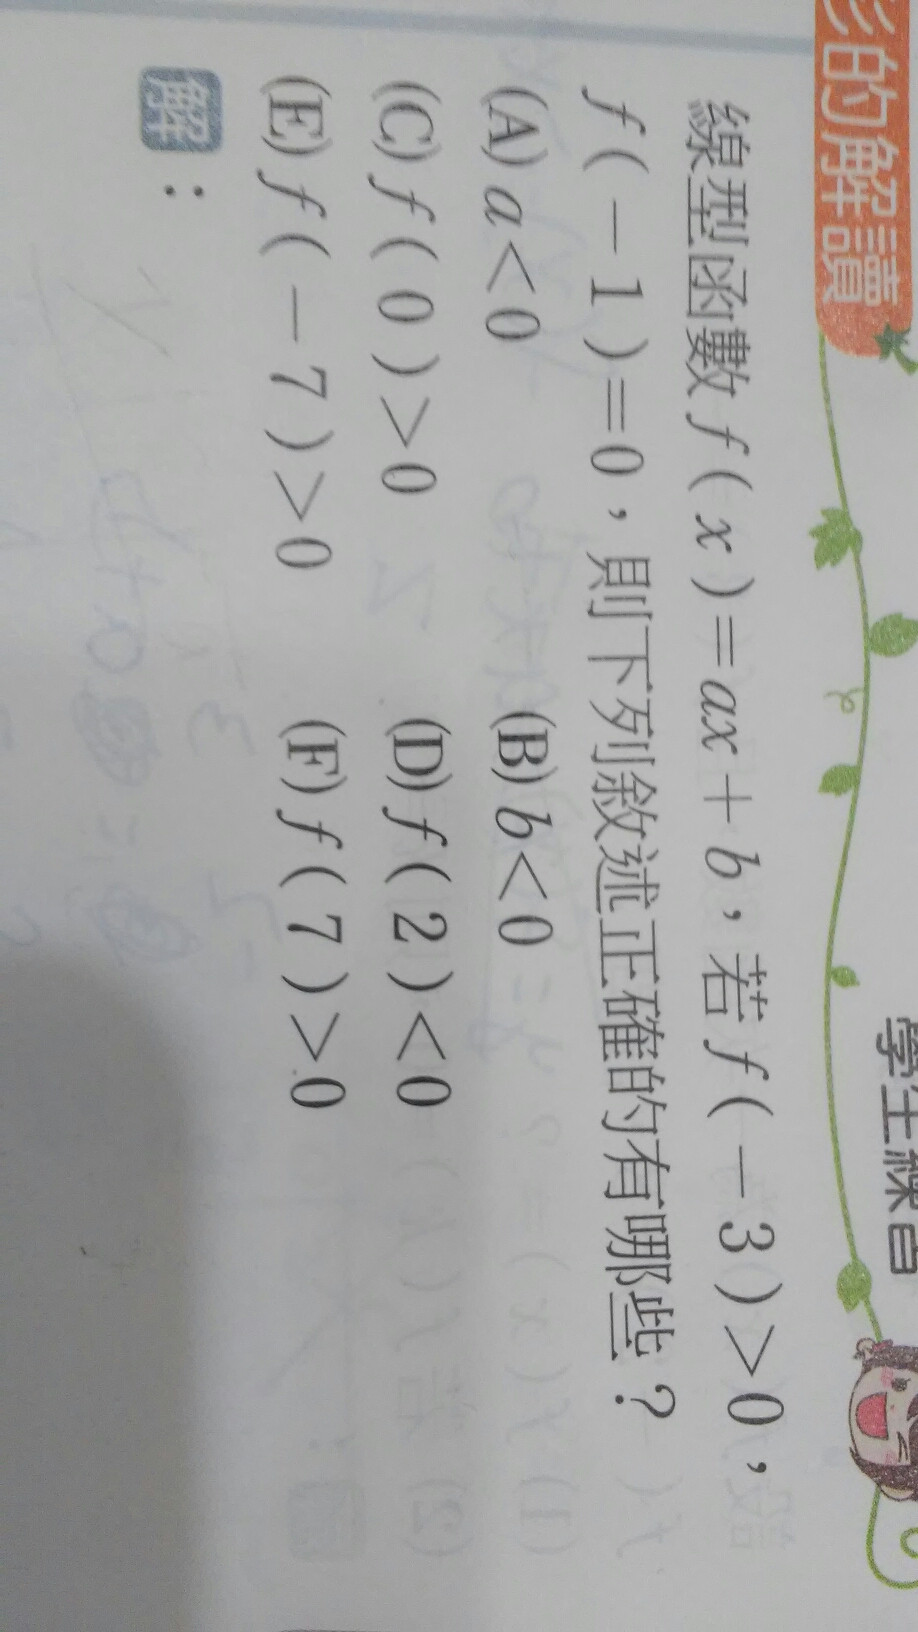 彩的解讀
學生練習
線型函數f(x)=ax+b，若f(-3)>0，
f(-1)=0，則下列敘述正確的有哪些？
(A) a<0 (B) b<0
(C) f(0)>0 (D) f(2)<0
(E) f(-7)>0 (F) f(7)>0
解：